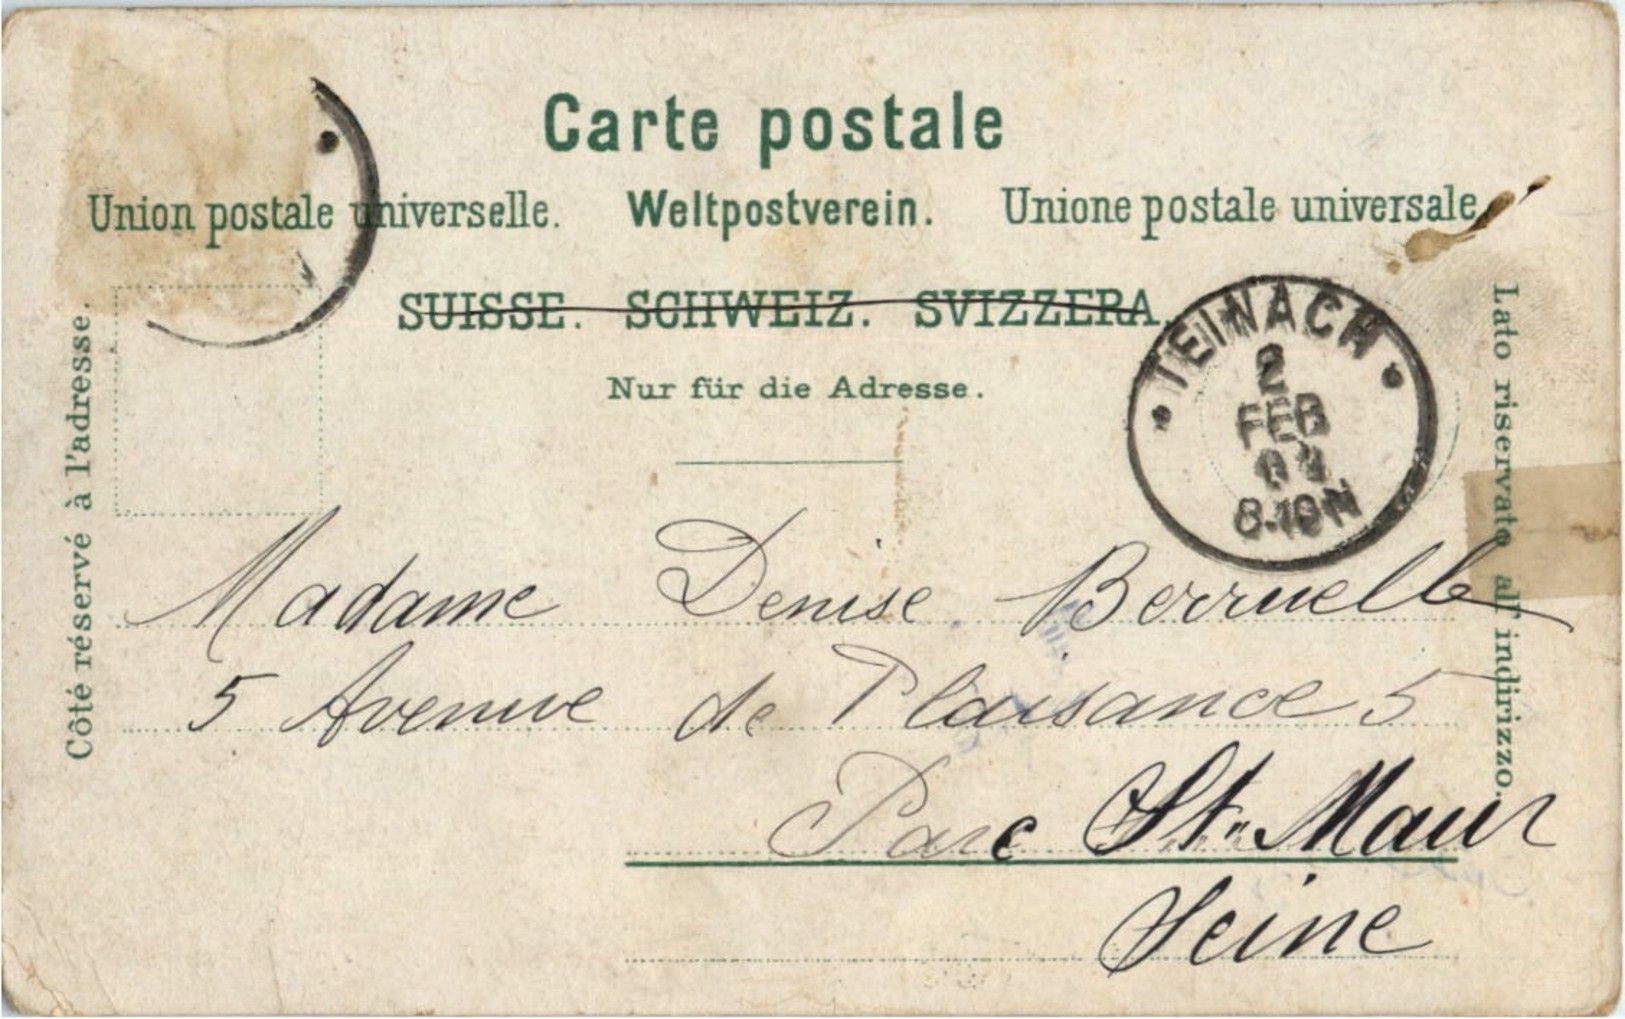 Carte postale
Union postale universelle. Weltpostverein. Unione postale universale.
SUISSE. SCHWEIZ. SVIZZERA.
Nur für die Adresse.
Côté réservé à l'adresse.
Lato riservato all'indirizzo.
TEINACH
2
FEB
8-10N
Madame Denise Berruelle
5 Avenue de Plaisance 5
Parc St. Maur
Seine